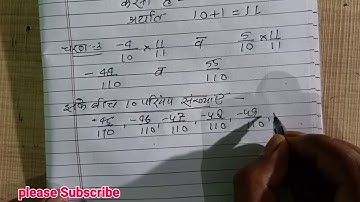 करता ह
अर्थात 10+1=11
चरण-3 -4/10 × 11/11 व 5/10 × 11/11
-44/110 व 55/110
इनके बीच 10 परिमेय संख्याएँ -
-45/110, -46/110, -47/110, -48/110, -49/110,
please Subscribe